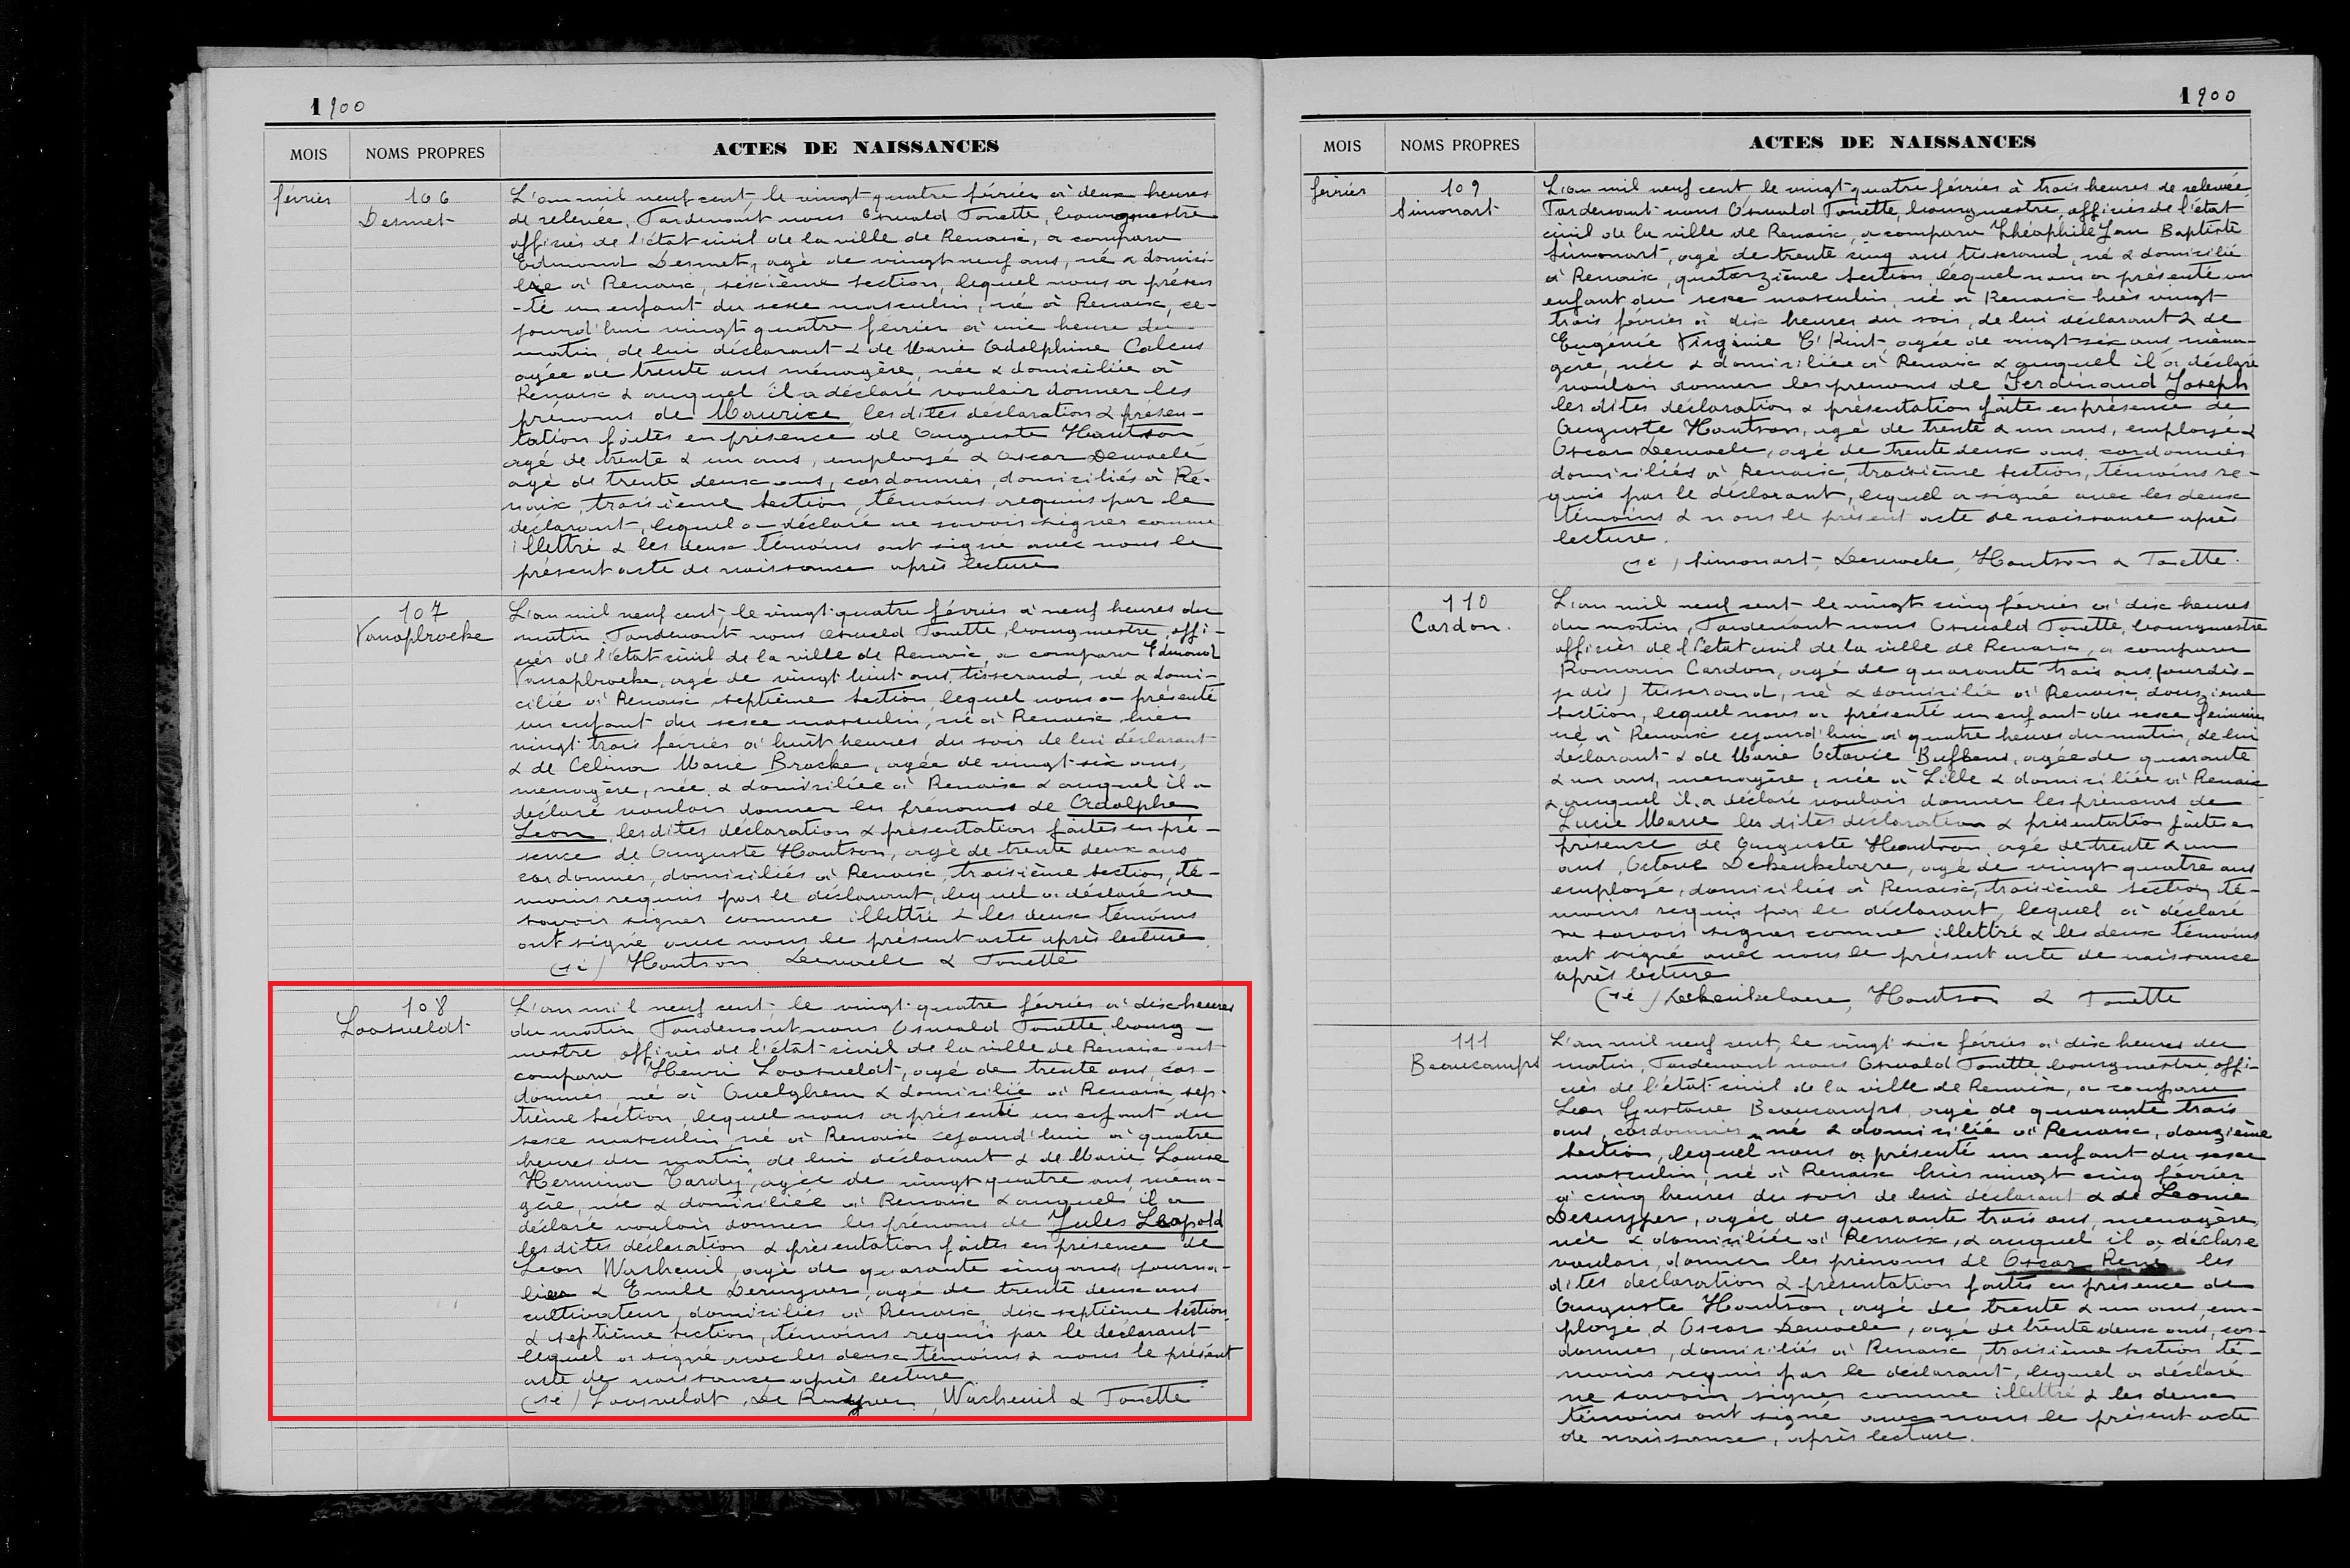 1900
MOIS
NOMS PROPRES
ACTES DE NAISSANCES
février
106
Desmet
L'an mil neuf cent, le vingt quatre février à deux heures
de relevée, Pardevant nous Oswald Ponette, bourgmestre
officier de l'état civil de la ville de Renaix, a comparu
Edmond Desmet, agé de vingt neuf ans, né & domici-
lié à Renaix, seizième section, lequel nous a présen
-té un enfant du sexe masculin, né à Renaix, ce-
jourd'hui vingt quatre février à une heure du
matin, de lui déclarant & de Marie Adolphine
agée de trente ans ménagère, née & domiciliée à
Renaix & auquel il a déclaré vouloir donner les
prénoms de Maurice, les dites déclaration & présen-
tation faites en présence de Auguste Hantson,
agé de trente & un ans, employé & Oscar Dewaele
agé de trente deux ans, cordonnier, domiciliés à Re-
naix, troisième section, témoins requis par le
déclarant, lequel a déclaré ne savoir signer comme
illettré & les deux témoins ont signé avec nous le
présent acte de naissance après lecture
107
Vanoplbroeke
L'an mil neuf cent, le vingt quatre février à neuf heures du
matin Pardevant nous Oswald Ponette, bourgmestre, offi-
cier de l'état civil de la ville de Renaix, a comparu Edmond
agé de vingt huit ans, tisserand, né & domi-
cilié à Renaix septième section, lequel nous a présenté
un enfant du sexe masculin, né à Renaix hier
vingt trois février à huit heures du soir de lui déclarant
& de Celina Marie Bracke, agée de vingt six ans,
ménagère, née & domiciliée à Renaix & auquel il a
déclaré vouloir donner les prénoms de Adolphe
Leon, les dites déclaration & présentation faites en pré-
sence de Auguste Hantson, agé de trente deux ans
cordonnier, domiciliés à Renaix, troisième section, té-
moins requis par le déclarant, lequel a déclaré ne
savoir signer comme illettré & les deux témoins
ont signé avec nous le présent acte après lecture
(sé) Hantson Dewaele & Ponette
108
Loosveldt
L'an mil neuf cent, le vingt quatre février à dix heures
du matin Pardevant nous Oswald Ponette, bourg-
mestre, officier de l'état civil de la ville de Renaix ont
comparu Henri Loosveldt, agé de trente ans, cor-
donnier, né à Quelghem & domicilié à Renaix, sep-
tième section, lequel nous a présenté un enfant du
sexe masculin, né à Renaix cejourd'hui à quatre
heures du matin, de lui déclarant & de Marie Louise
Hermina Tardy, agée de vingt quatre ans, ména-
gère, née & domiciliée à Renaix & auquel il a
déclaré vouloir donner les prénoms de Jules Léopold
les dites déclaration & présentation faites en présence de
Leon Wacheuil, agé de quarante cinq ans, journa-
lier & Emile Deruyver, agé de trente deux ans
cultivateur, domiciliés à Renaix, dix septième section
& septième section, témoins requis par le déclarant
lequel a signé avec les deux témoins & nous le présent
acte de naissance après lecture.
(sé) Loosveldt, De Ruyver, Wacheuil & Ponette
1900
MOIS
NOMS PROPRES
ACTES DE NAISSANCES
février
109
Simonart
L'an mil neuf cent, le vingt quatre février à trois heures de relevée,
Pardevant nous Oswald Ponette, bourgmestre, officier de l'état
civil de la ville de Renaix, a comparu Théophile Jean Baptiste
Simonart, agé de trente cinq ans tisserand, né & domicilié
à Renaix, quatorzième section, lequel nous a présenté un
enfant du sexe masculin, né à Renaix hier vingt
trois février à dix heures du soir, de lui déclarant & de
Eugénie Virginie T'Kint, agée de vingt six ans, ména-
gère, née & domiciliée à Renaix & auquel il a déclaré
vouloir donner les prénoms de Ferdinand Joseph
les dites déclaration & présentation faites en présence de
Auguste Hantson, agé de trente & un ans, employé &
Oscar Dewaele, agé de trente deux ans cordonnier
domiciliés à Renaix, troisième section, témoins re-
quis par le déclarant, lequel a signé avec les deux
témoins & nous le présent acte de naissance après
lecture.
(sé) Simonart, Dewaele, Hantson & Ponette.
110
Cardon.
L'an mil neuf cent le vingt cinq février à dix heures
du matin, Pardevant nous Oswald Ponette, bourgmestre
officier de l'état civil de la ville de Renaix, a comparu
Romain Cardon, agé de quarante trois ans
(je dis) tisserand, né & domicilié à Renaix, douzième
section, lequel nous a présenté un enfant du sexe féminin
né à Renaix cejourd'hui à quatre heures du matin, de lui
déclarant & de Marie Octavie Buffens, agée de quarante
& un ans, ménagère, née à Lille & domiciliée à Renaix
& auquel il a déclaré vouloir donner les prénoms de
Lucie Marie les dites déclaration & présentation faites en
présence de Auguste Hantson agé de trente & un
ans, Octave Dekeukelaere, agé de vingt quatre ans
employé, domiciliés à Renaix, troisième section, té-
moins requis par le déclarant, lequel a déclaré
ne savoir signer comme illettré & les deux témoins
ont signé avec nous le présent acte de naissance
après lecture
(sé) Dekeukelaere, Hantson & Ponette
111
Beaucamps
L'an mil neuf cent, le vingt six février à dix heures du
matin, Pardevant nous Oswald Ponette, bourgmestre, offi-
cier de l'état civil de la ville de Renaix, a comparu
Léon Gustave Beaucamps, agé de quarante trois
ans, cordonnier, né & domicilié à Renaix, douzième
section, lequel nous a présenté un enfant du sexe
masculin, né à Renaix hier vingt cinq février
à cinq heures du soir de lui déclarant & de Leonie
Deruyver, agée de quarante trois ans, ménagère,
née & domiciliée à Renaix, & auquel il a déclaré
vouloir donner les prénoms de Oscar René les
dites déclaration & présentation faites en présence de
Auguste Hantson, agé de trente & un ans, em-
ployé, & Oscar Dewaele, agé de trente deux ans, cor-
donnier, domiciliés à Renaix, troisième section, té-
moins requis par le déclarant, lequel a déclaré
ne savoir signer comme illettré & les deux
témoins ont signé avec nous le présent acte
de naissance, après lecture.